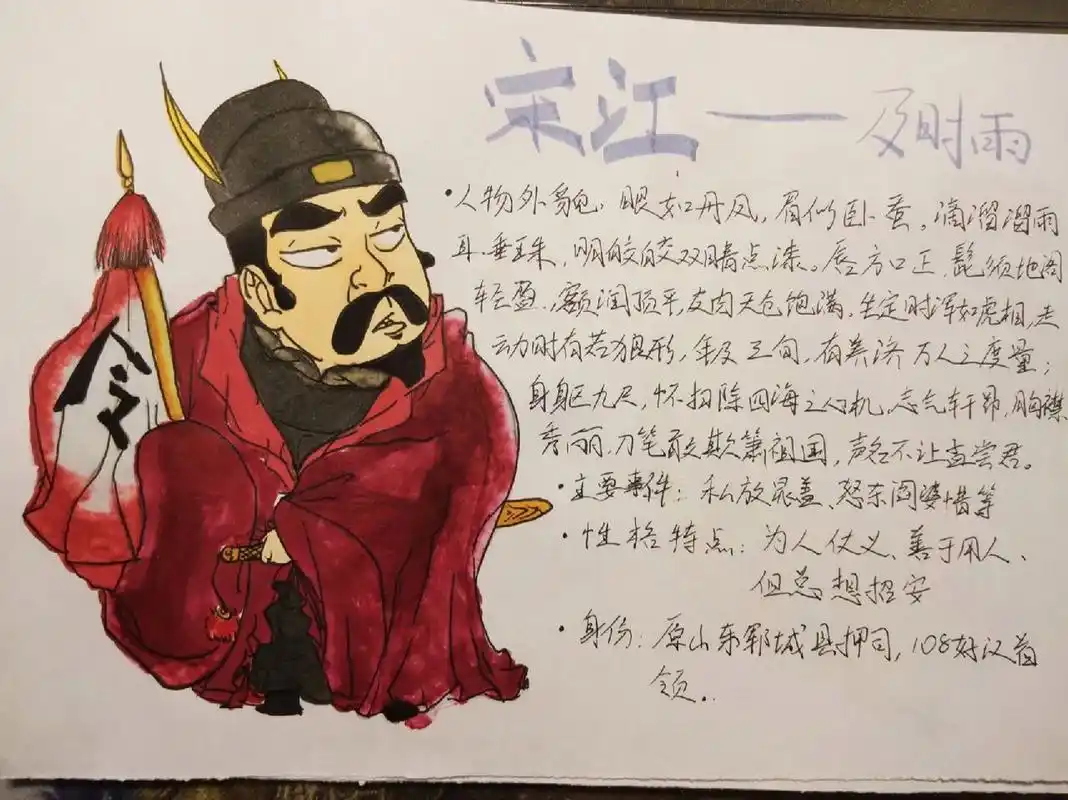 宋江——及时雨
•人物外貌：眼如丹凤，眉似卧蚕，滴溜溜雨
耳垂珠，明皎皎双睛点漆。唇方口正，髭须地阁
轻盈，额润顶平，皮肉天仓饱满，坐定时浑如虎相，走
动时有若狼形，年及三旬，有养济万人之度量；
身躯九尺，怀扫除四海之心机，志气轩昂，胸襟
秀丽，刀笔敢欺萧祖国，声名不让孟尝君。
•主要事件：私放晁盖、怒杀阎婆惜等
•性格特点：为人仗义、善于用人、
但总想招安
•身份：原山东郓城县押司，108好汉首
领..
令